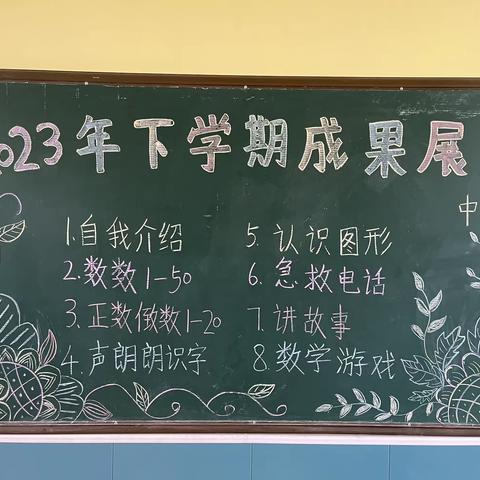 2023年下学期成果展
中
1.自我介绍
2.数数1-50
3.正数倒数1-20
4.声朗朗识字
5.认识图形
6.急救电话
7.讲故事
8.数学游戏